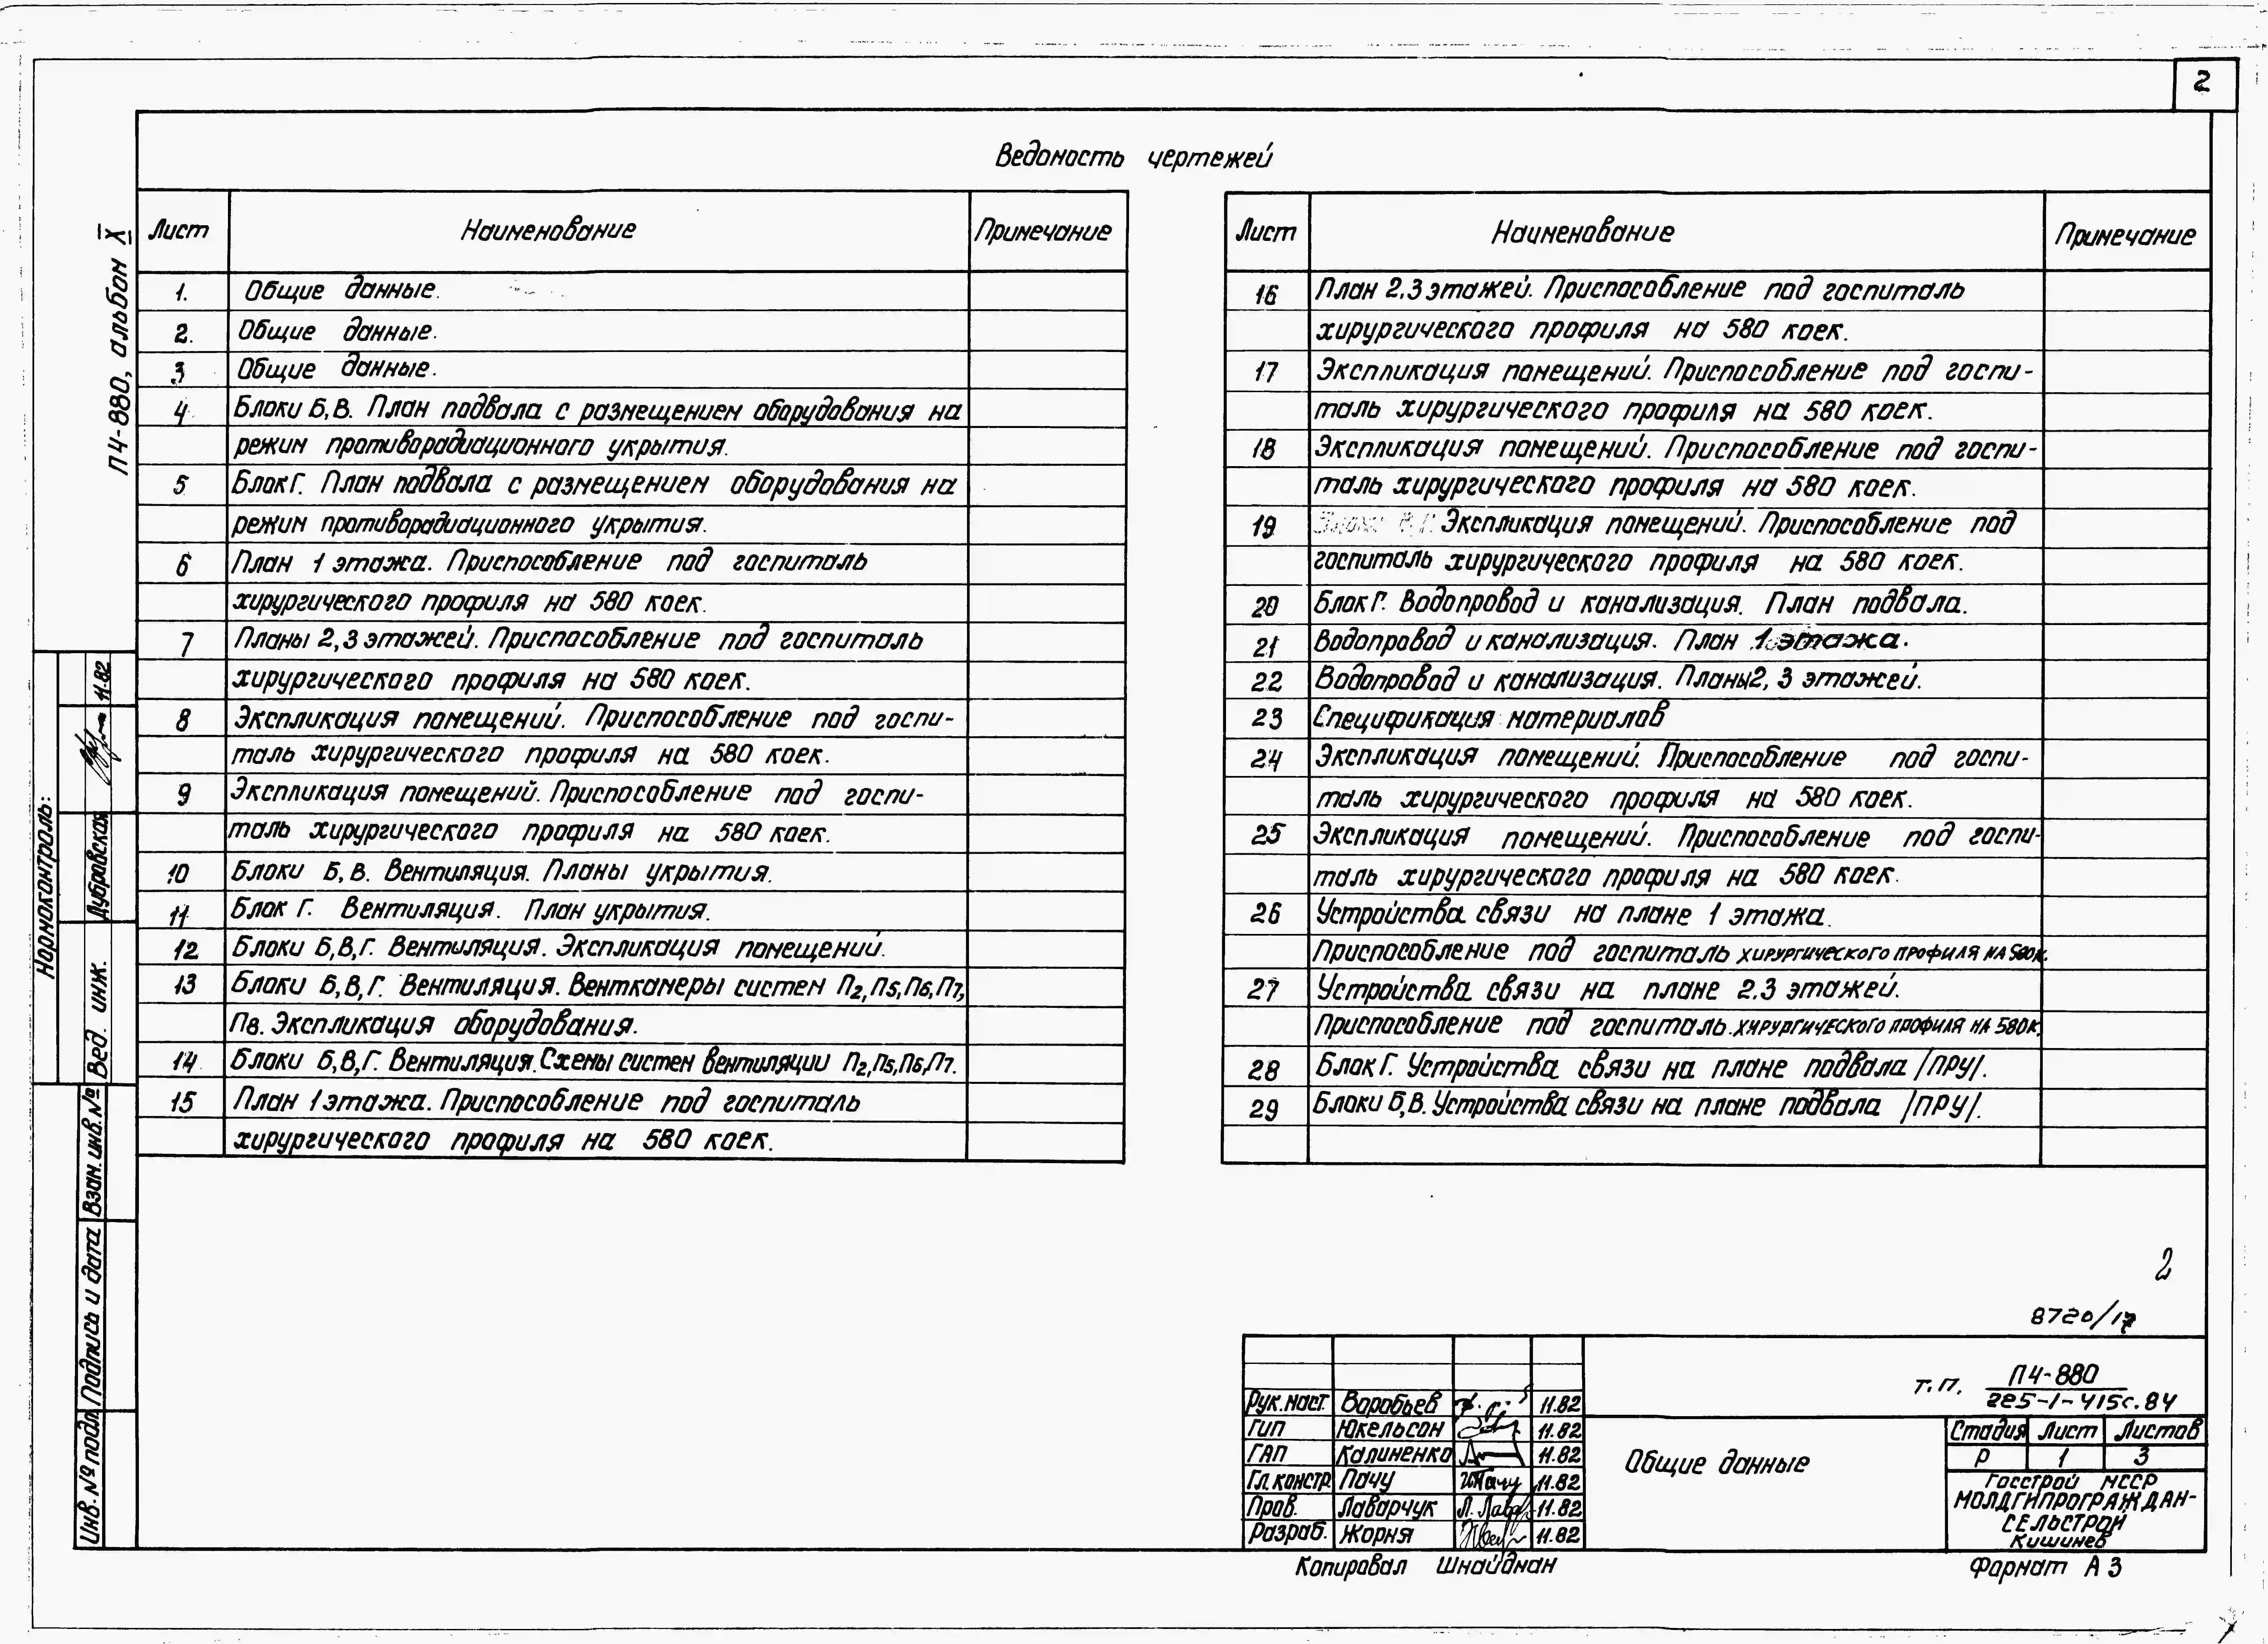 2
Ведомость чертежей
Лист Наименование Примечание
1. Общие данные.
2. Общие данные.
3 Общие данные.
4 Блоки Б,В. План подвала с размещением оборудования на
режим противорадиационного укрытия.
5 Блок Г. План подвала с размещением оборудования на
режим противорадиационного укрытия.
6 План 1 этажа. Приспособление под госпиталь
хирургического профиля на 580 коек.
7 Планы 2,3 этажей. Приспособление под госпиталь
хирургического профиля на 580 коек.
8 Экспликация помещений. Приспособление под госпи-
таль хирургического профиля на 580 коек.
9 Экспликация помещений. Приспособление под госпи-
таль хирургического профиля на 580 коек.
10 Блоки Б,В. Вентиляция. Планы укрытия.
11 Блок Г. Вентиляция. План укрытия.
12 Блоки Б,В,Г. Вентиляция. Экспликация помещений.
13 Блоки Б,В,Г. Вентиляция. Венткамеры систем П2,П5,П6,П7,
П8. Экспликация оборудования.
14 Блоки Б,В,Г. Вентиляция. Схемы систем вентиляции П2,П5,П6,П7.
15 План 1 этажа. Приспособление под госпиталь
хирургического профиля на 580 коек.
Лист Наименование Примечание
16 План 2,3 этажей. Приспособление под госпиталь
хирургического профиля на 580 коек.
17 Экспликация помещений. Приспособление под госпи-
таль хирургического профиля на 580 коек.
18 Экспликация помещений. Приспособление под госпи-
таль хирургического профиля на 580 коек.
19 Экспликация помещений. Приспособление под
госпиталь хирургического профиля на 580 коек.
20 Блок Г. Водопровод и канализация. План подвала.
21 Водопровод и канализация. План 1 этажа.
22 Водопровод и канализация. Планы 2, 3 этажей.
23 Спецификация материалов
24 Экспликация помещений. Приспособление под госпи-
таль хирургического профиля на 580 коек.
25 Экспликация помещений. Приспособление под госпи-
таль хирургического профиля на 580 коек.
26 Устройства связи на плане 1 этажа.
Приспособление под госпиталь хирургического профиля на 580к.
27 Устройства связи на плане 2.3 этажей.
Приспособление под госпиталь.хирургического профиля на 580к.
28 Блок Г. Устройства связи на плане подвала /ПРУ/.
29 Блоки Б,В. Устройства связи на плане подвала /ПРУ/.
П4-880, альбом X
Нормоконтроль:
Вед. инж. Дубровская 11.82
Взам. инв. №
Подпись и дата
Инв. № подл
2
8720/17
Т.П. П4-880
225-1-415с.84
Рук.маст. Воробьев 11.82
ГИП Юкельсон 11.82
ГАП Калиненко 11.82
Гл.констр. Пачу 11.82
Пров. Лаварчук 11.82
Разраб. Жорня 11.82
Общие данные
Стадия Лист Листов
Р 1 3
Госстрой МССР
МОЛДГИПРОГРАЖДАН-
СЕЛЬСТРОЙ
Кишинев
Копировал Шнайдман
Формат А3